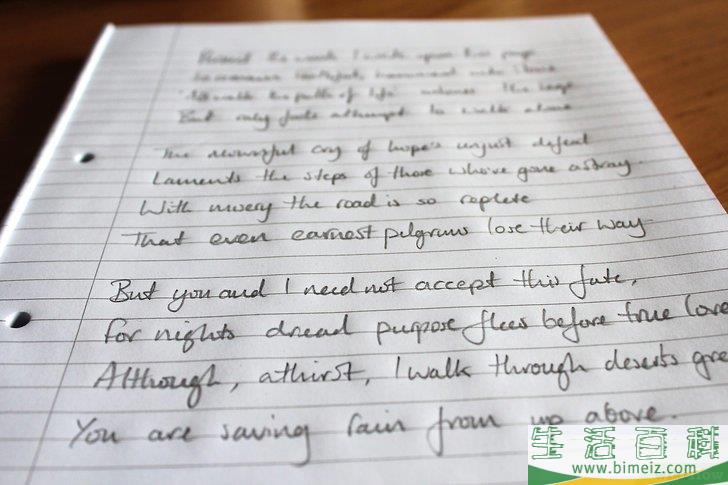 the words I write upon this page
the path of life
But only fools attempt to walk alone
The mournful cry of hope's unjust defeat
Laments the steps of those who've gone astray.
With misery the road is so replete
That even earnest pilgrims lose their way
But you and I need not accept this fate,
For nights dread purpose flees before true love
Although, athirst, I walk through deserts gre
You are saving rain from up above.
生活百科
www.bimeiz.com